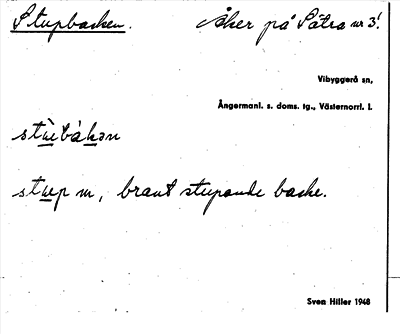 Stupbacken.
Åker på Sätra nr 3!
Vibyggerå sn,
Ångermanl. s. doms. tg., Västernorrl. l.
stu̲`pbàkən
stu̲p m, brant stupande backe.
Sven Hiller 1948